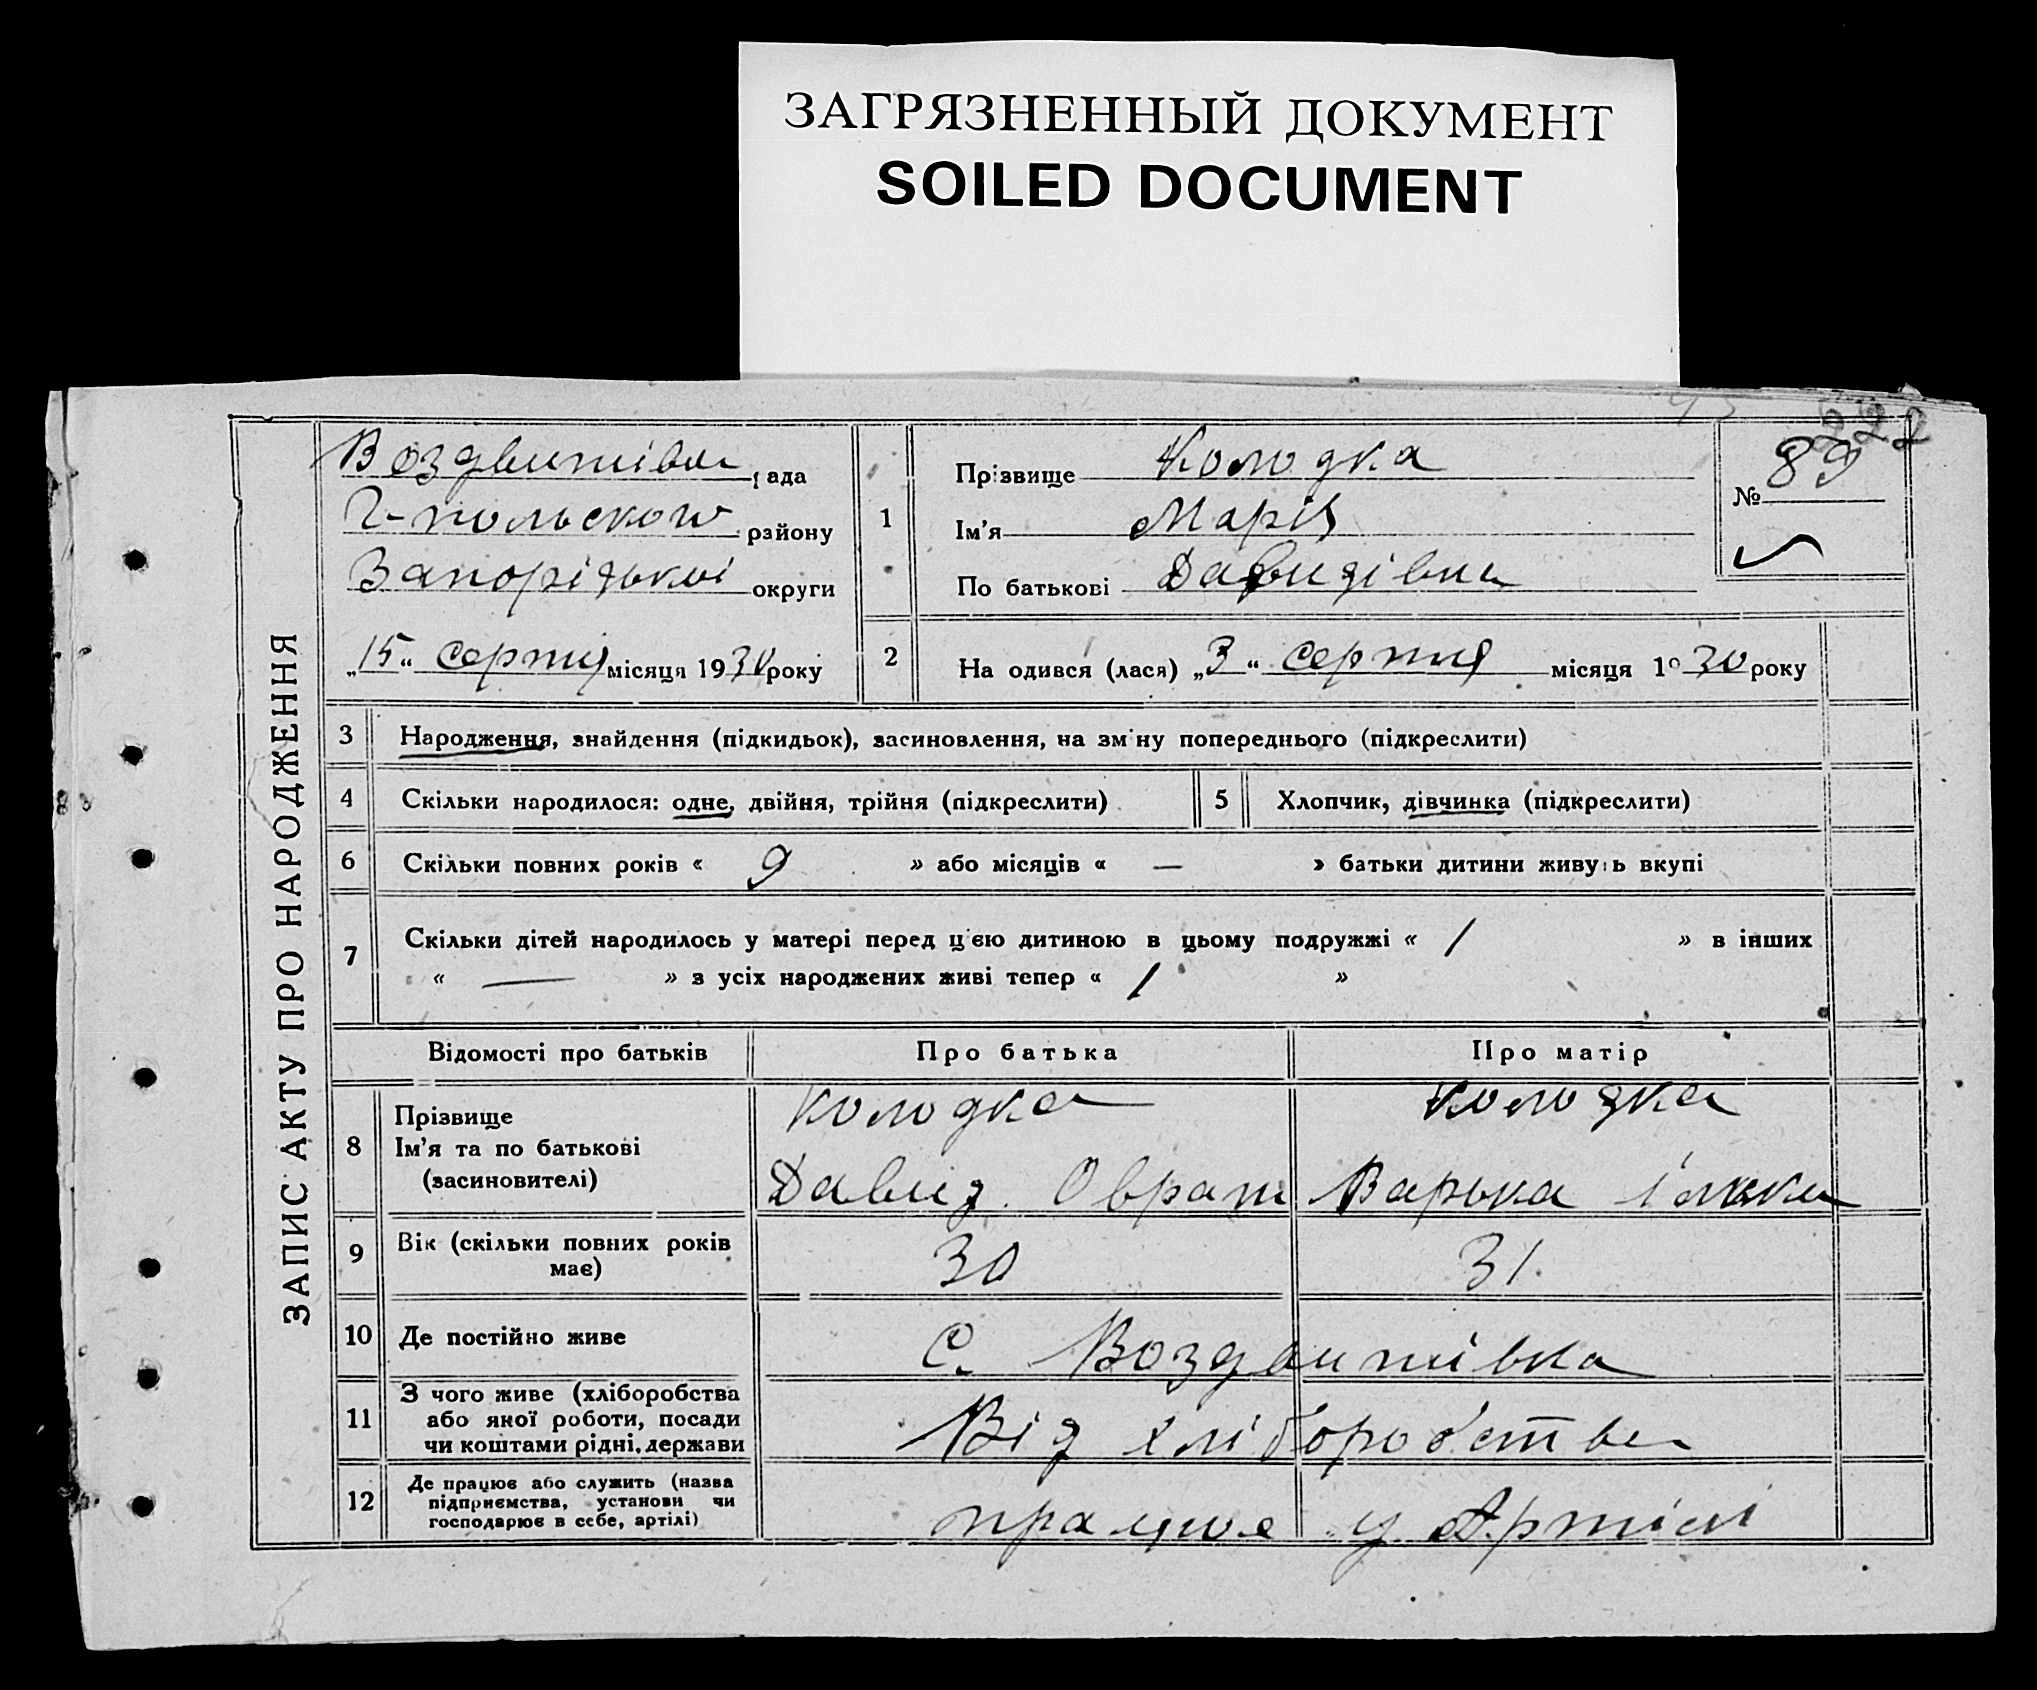 ЗАГРЯЗНЕННЫЙ ДОКУМЕНТ
SOILED DOCUMENT
222
ЗАПИС АКТУ ПРО НАРОДЖЕННЯ
Воздвижівка рада
Г-польского району
Запорізької округи
„15“ серпня місяця 1930 року
1
Прізвище Колодка
Ім'я Марія
По батькові Давидівна
№ 89
2 На одився (лася) „3“ серпня місяця 1930 року
3 Народження, знайдення (підкидьок), засиновлення, на зміну попереднього (підкреслити)
4 Скільки народилося: одне, двійня, трійня (підкреслити)
5 Хлопчик, дівчинка (підкреслити)
6 Скільки повних років « 9 » або місяців « — » батьки дитини живуть вкупі
7 Скільки дітей народилось у матері перед цією дитиною в цьому подружжі « 1 » в інших
« — » з усіх народжених живі тепер « 1 »
Відомості про батьків Про батька Про матір
8 Прізвище
Ім'я та по батькові
(засиновителі)
Колодка
Давид
Колодка
Варька
9 Вік (скільки повних років
має)
30 31
10 Де постійно живе с. Воздвижівка
11 З чого живе (хліборобства
або якої роботи, посади
чи коштами рідні, держави
Від хліборобства
12 Де працює або служить (назва
підприємства, установи чи
господарює в себе, артілі)
працює у Артілі